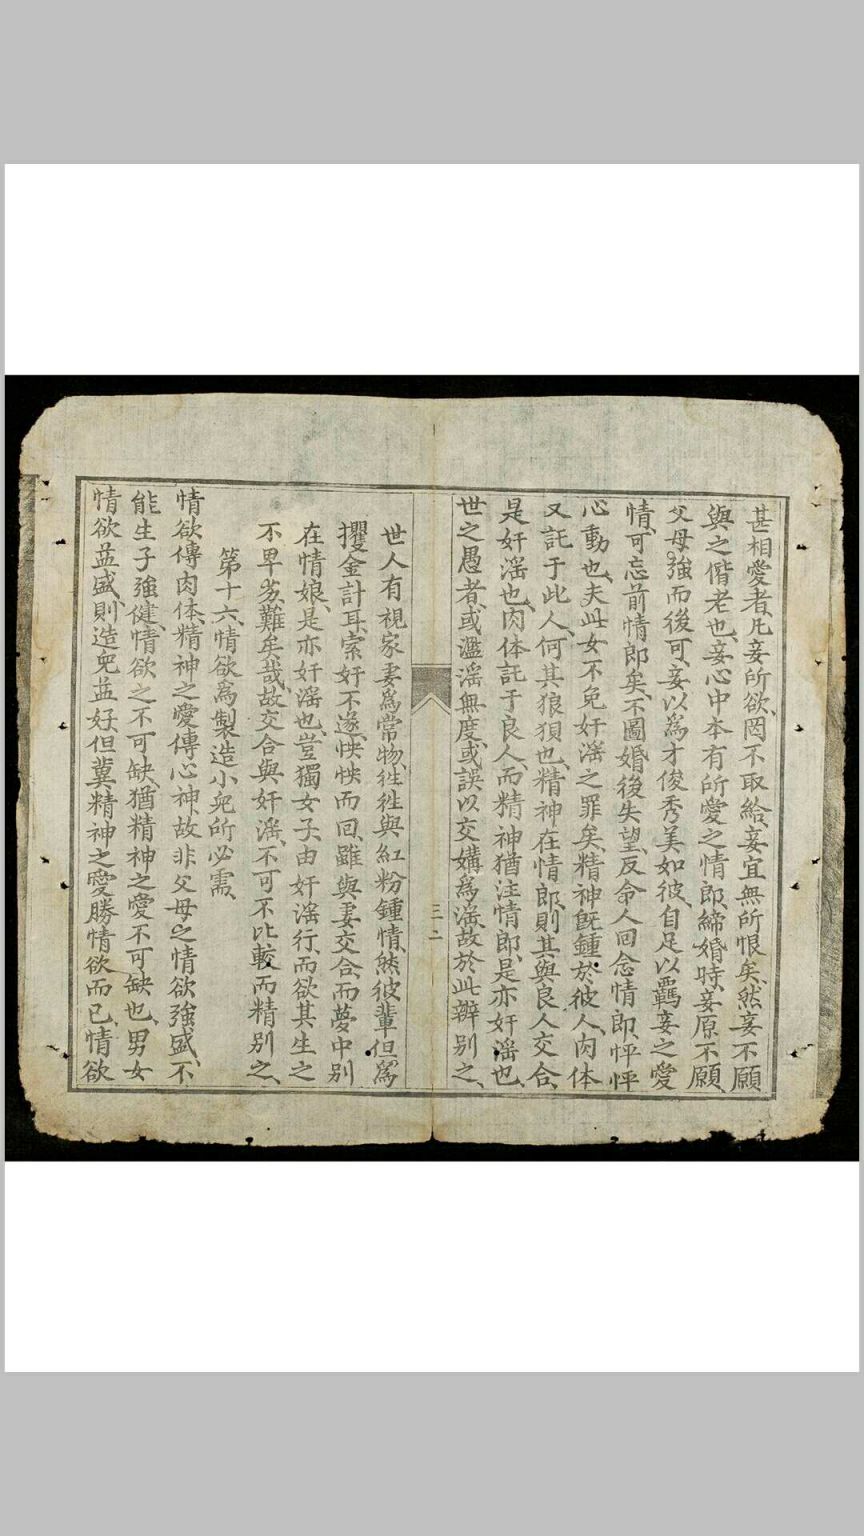 甚相愛者、凡妾所欲、罔不取給、妾宜無所恨矣、然妾不願
與之偕老也、妾心中本有所愛之情郎、締婚時、妾原不願、
父母強而後可、妾以為才俊秀美如彼、自足以羈妾之愛
情、可忘前情郎矣、不圖婚後失望、反命人回念情郎、怦怦
心動也、夫此女不免奸滛之罪矣、精神既鍾於彼人、肉体
又託于此人、何其狼狽也、精神在情郎、則其與良人交合、
是奸滛也、肉体託于良人、而精神猶注情郎、是亦奸滛也、
世之愚者、或濫滛無度、或誤以交媾為滛、故於此辦別之、
三二
世人有視家妻爲常物、徃徃與紅粉鍾情、然彼輩但爲
攫金計耳、索奸不遂、怏怏而回、雖與妻交合、而夢中別
在情娘、是亦奸滛也、豈獨女子由奸滛行、而欲其生之
不卑劣、難矣哉、故交合與奸滛、不可不比較而精別之、
第十六、情欲爲製造小兒所必需、
情欲傳肉体、精神之愛傳心神、故非父母之情欲強盛、不
能生子強健、情欲之不可缺、猶精神之愛不可缺也、男女
情欲益盛、則造兒益好、但冀精神之愛勝情欲而已、情欲